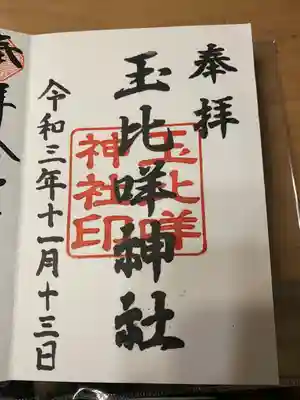 奉拝
玉比咩神社
玉比咩
神社印
令和三年十一月十三日